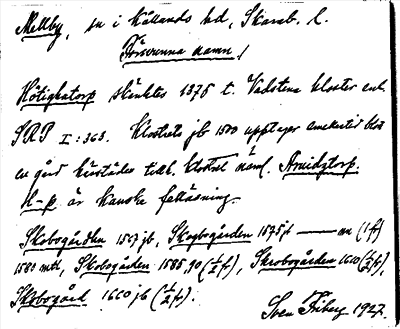 Mellby, sn i Kållands hd, Skarab. l.
Försvunna namn!
Hötighatorp skänktes 1375 t. Vadstena kloster enl.
SRP I:363. Klostrets jb 1500 upptager emellertid blot
en gård härstädes tillh. klostret näml. Arnidztorp.
H-p är kanske felläsning.
Skobogården 1567 jb, Skogbogården 1575 f — nn (1 f)
1580 mtl, Skobogården 1585, 90 (1/2 f), Skrobogården 1610 (1/2 f),
Skobogård 1650 jb (1/2 f).
Sven Friberg 1927.